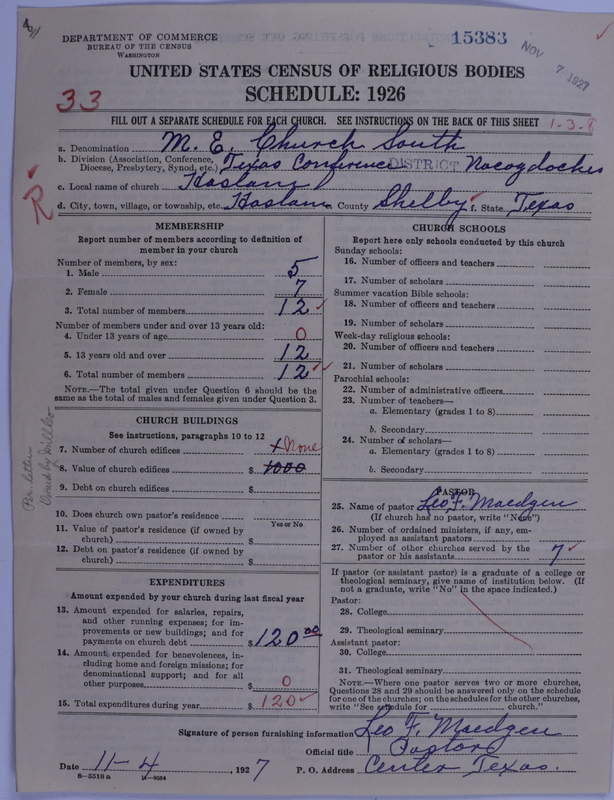 DEPARTMENT OF COMMERCE
BUREAU OF THE CENSUS
WASHINGTON
15383
NOV 7 1927
UNITED STATES CENSUS OF RELIGIOUS BODIES
33
SCHEDULE: 1926
FILL OUT A SEPARATE SCHEDULE FOR EACH CHURCH. SEE INSTRUCTIONS ON THE BACK OF THIS SHEET 1-3-8
a. Denomination M. E. Church South
b. Division (Association, Conference, Diocese, Presbytery, Synod, etc.) Texas Conference DISTRICT Nacogdoches
c. Local name of church Haslam
R
d. City, town, village, or township, etc. Haslam County Shelby f. State Texas
MEMBERSHIP
Report number of members according to definition of
member in your church
Number of members, by sex:
1. Male 5
2. Female 7
3. Total number of members 12
Number of members under and over 13 years old:
4. Under 13 years of age 0
5. 13 years old and over 12
6. Total number of members 12
NOTE.—The total given under Question 6 should be the
same as the total of males and females given under Question 3.
CHURCH BUILDINGS
See instructions, paragraphs 10 to 12
7. Number of church edifices 1 None
8. Value of church edifices $ 1000
9. Debt on church edifices $
Per letter
Owned by Mill Co
10. Does church own pastor's residence
Yes or No
11. Value of pastor's residence (if owned by
church) $
12. Debt on pastor's residence (if owned by
church) $
EXPENDITURES
Amount expended by your church during last fiscal year
13. Amount expended for salaries, repairs,
and other running expenses; for im-
provements or new buildings; and for
payments on church debt $ 120.00
14. Amount expended for benevolences, in-
cluding home and foreign missions; for
denominational support; and for all
other purposes $ 0
15. Total expenditures during year $ 120
CHURCH SCHOOLS
Report here only schools conducted by this church
Sunday schools:
16. Number of officers and teachers
17. Number of scholars
Summer vacation Bible schools:
18. Number of officers and teachers
19. Number of scholars
Week-day religious schools:
20. Number of officers and teachers
21. Number of scholars
Parochial schools:
22. Number of administrative officers
23. Number of teachers—
a. Elementary (grades 1 to 8)
b. Secondary
24. Number of scholars—
a. Elementary (grades 1 to 8)
b. Secondary
PASTOR
25. Name of pastor Leo F. Maedgen
(If church has no pastor, write "None")
26. Number of ordained ministers, if any, em-
ployed as assistant pastors
27. Number of other churches served by the
pastor or his assistants 7
If pastor (or assistant pastor) is a graduate of a college or
theological seminary, give name of institution below. (If
not a graduate, write "No" in the space indicated.)
Pastor:
28. College
29. Theological seminary
Assistant pastor:
30. College
31. Theological seminary
NOTE.—Where one pastor serves two or more churches,
Questions 28 and 29 should be answered only on the schedule
for one of the churches; on the schedules for the other churches,
write "See schedule for church."
Signature of person furnishing information Leo F. Maedgen
Official title Pastor
Date 11-4, 1927 P. O. Address Center Texas.
8-5519a